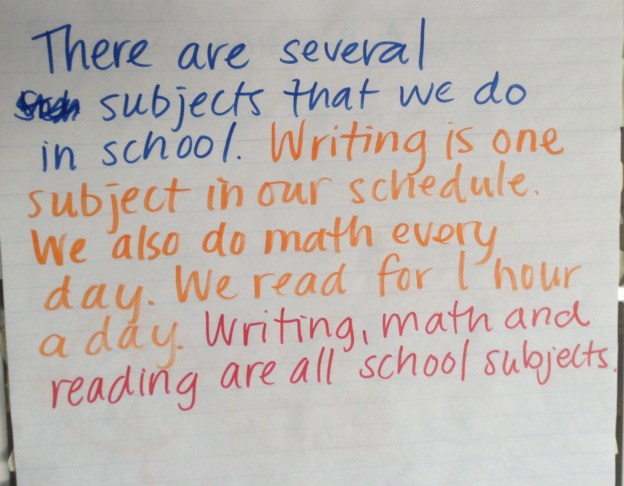 There are several
subjects that we do
in school. Writing is one
subject in our schedule.
We also do math every
day. We read for 1 hour
a day. Writing, math and
reading are all school subjects.